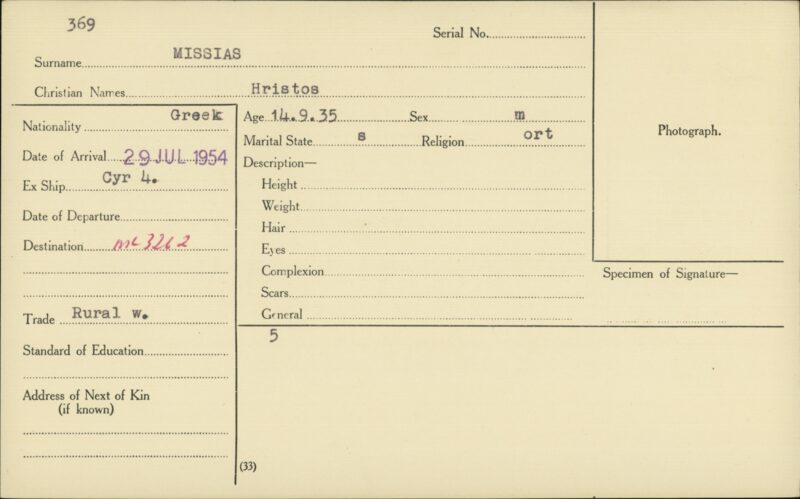 369
Serial No.
Surname MISSIAS
Christian Names Hristos
Nationality Greek
Date of Arrival 29 JUL 1954
Ex Ship Cyr 4.
Date of Departure
Destination mc 3262
Trade Rural w.
Standard of Education
Address of Next of Kin
(if known)
Age 14.9.35 Sex m
Marital State s Religion ort
Description—
Height
Weight
Hair
Eyes
Complexion
Scars
General
5
(33)
Photograph.
Specimen of Signature—